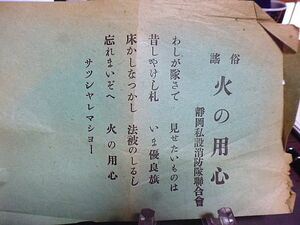 俗謡
火の用心
静岡私設消防隊聯合會
わしが隊さて 見せたいものは
昔しやけし札 いま優良旗
床かしなつかし 法被のしるし
忘れまいぞへ 火の用心
サツシヤレマシヨー